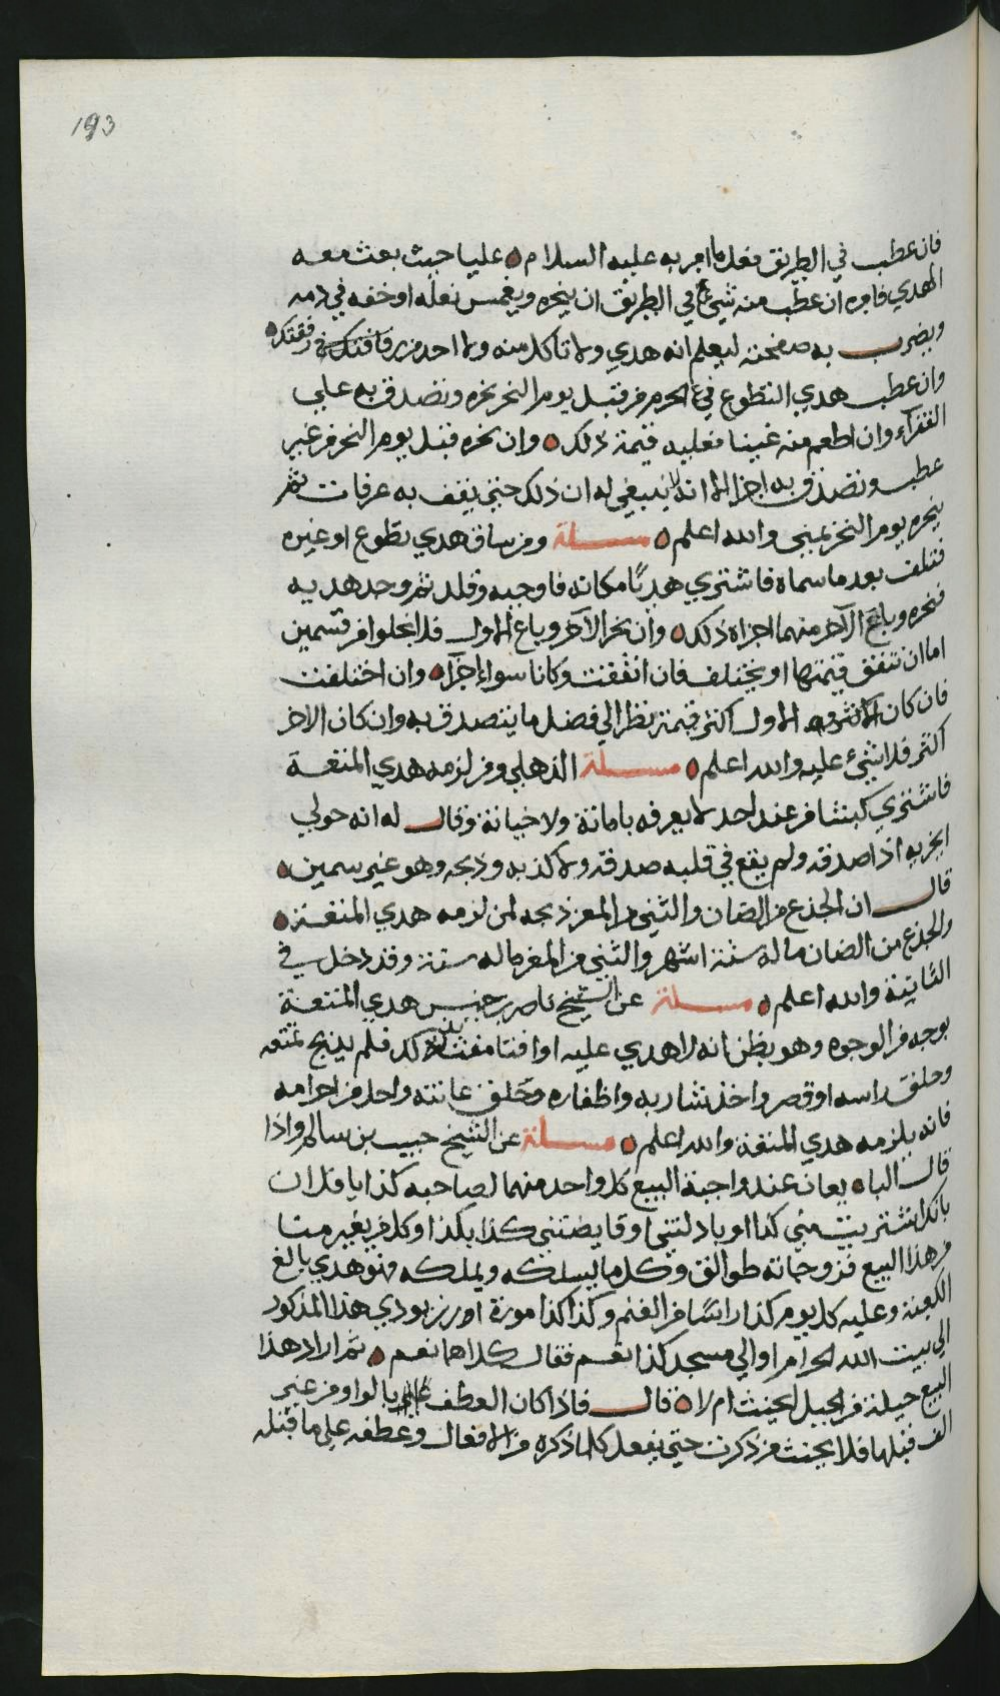 193
فان عطب في الطريق فعل ما امر به عليه السلام عليا حيث بعث معه
الهدي فامره ان عطب منه شيء في الطريق ان ينحره ويغمس نعله او خفه في دمه
ويضرب به صفحته ليعلم انه هدي ولا تاكل منه ولا احد من رفاقتك في رفقتك
وان عطب هدي التطوع في الحرم من قبل يوم النحر نحره وتصدق به علي
الفقراء وان اطعم منه غنيا فعليه قيمة ذلك وان نحره قبل يوم النحر من غير
عطب وتصدق به اجزا الا انه لا ينبغي له ان ذلك حتي يقف به عرفات ثم
ينحره يوم النحر بمني والله اعلم مسئلة ومن ساق هدي تطوع او غيره
فتلف بعد ما سماه فاشتري هديًا مكانه فاوجبه وقلد ثم وجد هديه
فنحره وباع الآخر منهما اجزاه ذلك وان نحر الآخر وباع الاول فلا يخلوا من قسمين
اما ان تتفق قيمتها او يختلف فان اتفقت وكانا سواء اجزآ وان اختلفت
فان كان الاول اكثر قيمة نظر الي فضل ما يتصدق به وان كان الاخر
اكثر فلا شيء عليه والله اعلم مسئلة الذهلي ومن لزمه هدي المتعة
فاشتري كبشا من عند احد لا يعرفه بامانة ولا خيانة وقال له انه حولي
ايجزيه اذا صدقه ولم يقع في قلبه صدقه ولا كذبه وذبحه وهو غير سمين
قال ان الجذع من الضان والثني من المعز ذبحه لمن لزمه هدي المتعة
والجذع من الضان ما له ستة اشهر والثني من المعز ما له سنة وقد دخل في
الثانية والله اعلم مسئلة عن الشيخ ناصر بن خميس هدي المتعة
بوجه من الوجوه وهو يظن انه لا هدي عليه او افتا مفت بذلك فلم يذبح لمتعه
وحلق راسه او قصر واخذ شاربه واظفاره وحلق عانته واحل من احرامه
فانه يلزمه هدي المتعة والله اعلم مسئلة عن الشيخ حبيب بن سالم واذا
قال البايعان عند واجبة البيع كل واحد منهما لصاحبه كذا يا فلان
بانك اشتريت مني كذا او بادلتني او قايضتني كذا بكذا وكل من يغير منا
من هذا البيع فزوجاته طوالق وكل ما يسلكه ويملكه فهو هدي بالغ
الكعبة وعليه كل يوم كذا راسًا من الغنم وكذا كذا مورة ارز يودي هذا المذكور
الي بيت الله الحرام او الي مسجد كذا نعم فقال كلاهما نعم ثم اراد هذا
البيع حيلة من الحيل ايحنث ام لا قال فاذا كان العطف بالواو من غير
الف قبلها فلا يحنث من ذكرت حتي يفعل كلما ذكره من الافعال وعطفه علي ما قبله